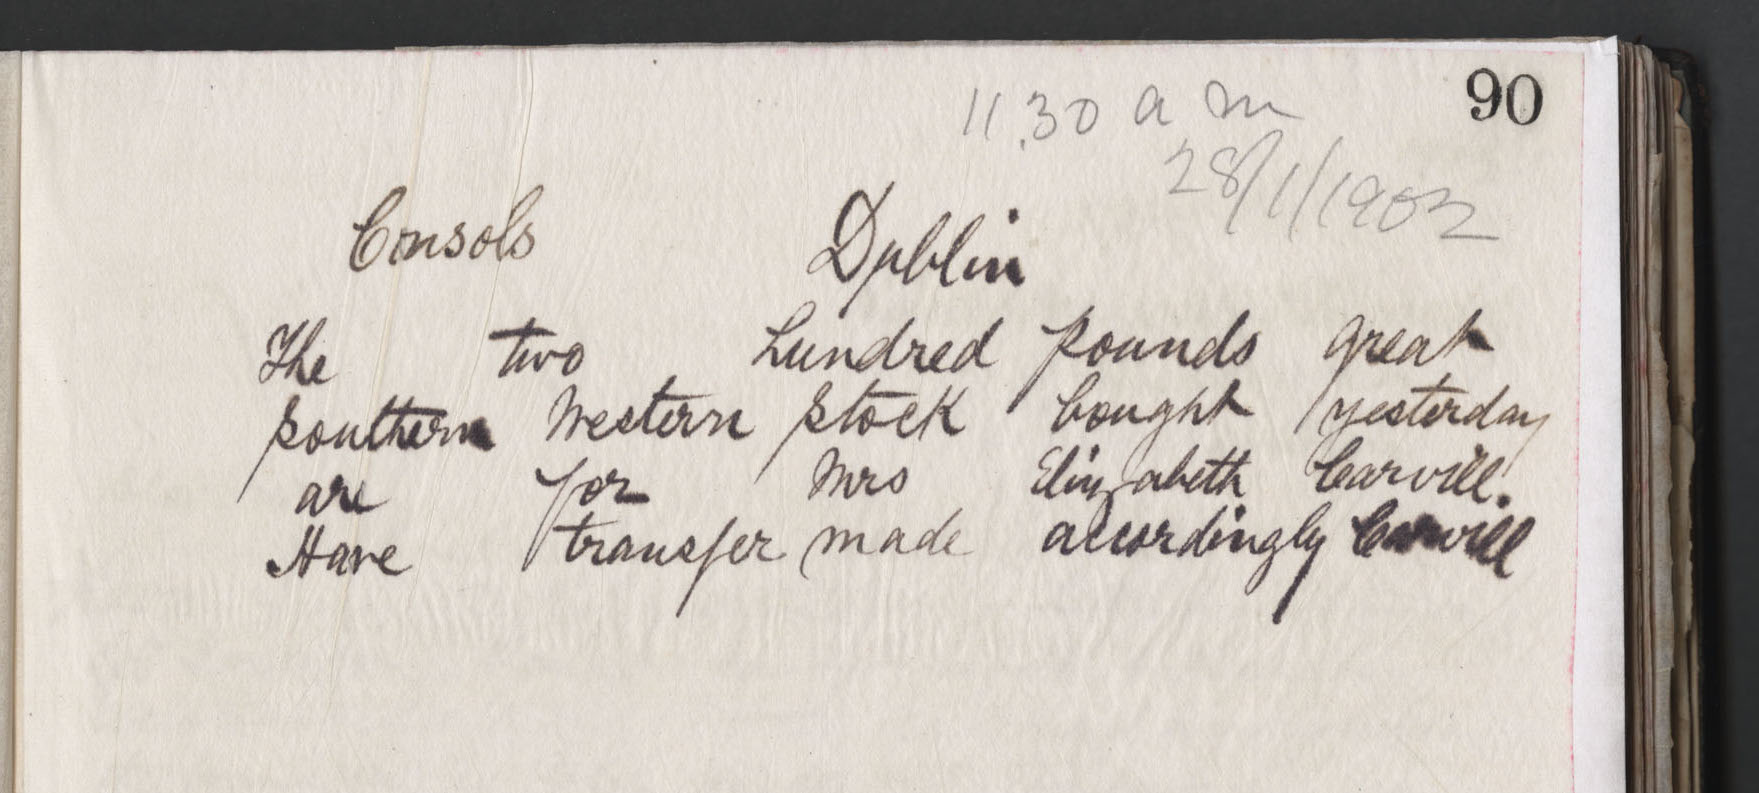 90
11.30 a m
28/1/1902
Consols Dublin
The two hundred pounds great
southern Western stock bought yesterday
are for Mrs Elizabeth Carvill.
Have transfer made accordingly Carvill